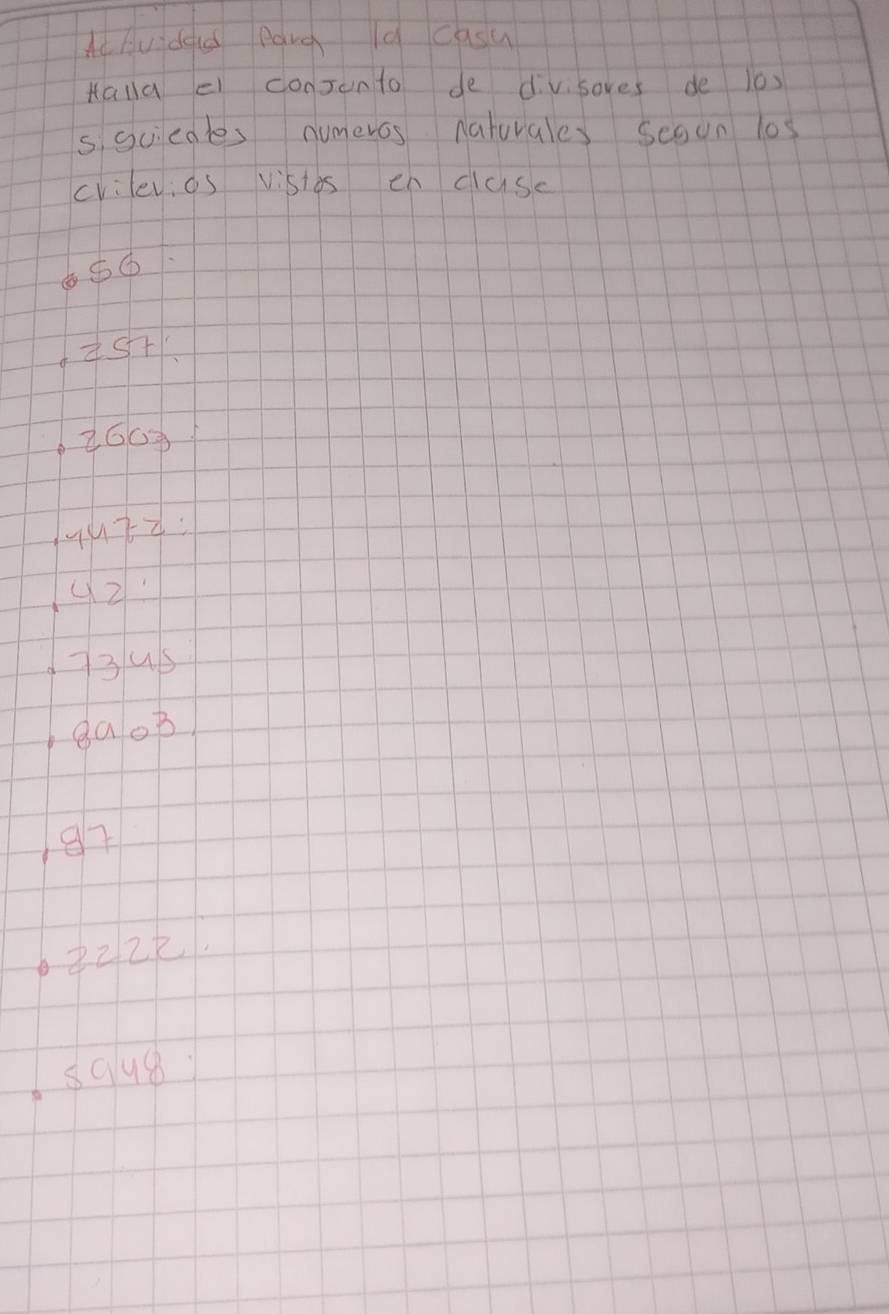 Actividad Para la casa
Halla el conjunto de divisores de los
siguientes numeros naturales segun los
criterios vistos en clase
56:
257:
2603
1472:
42:
7345
8903
87
2222.
5948: